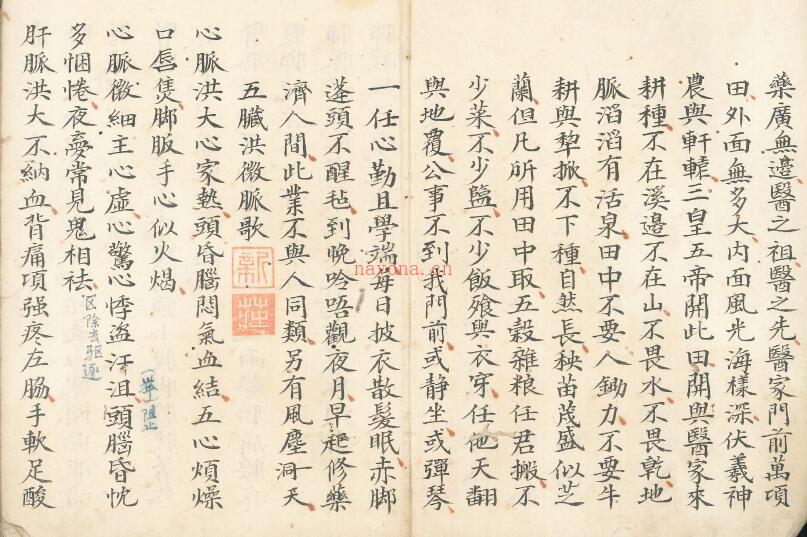 藥廣無邊醫之祖醫之先醫家門前萬項
田外面無多大內面風光海樣深伏羲神
農與軒轅三皇五帝開此田開與醫家來
耕種不在溪邊不在山不畏水不畏乾地
脈滔滔有活泉田中不要人鋤力不要牛
耕與犂掀不下種自然長秧苗茂盛似芝
蘭但凡所用田中取五穀雜粮任君搬不
少菜不少鹽不少飯飱與衣穿任他天翻
與地覆公事不到我門前或静坐或彈琴
一任心勤且學端每日披衣散髮眠赤脚
蓬頭不醒毡到晚吟唔觀夜月早起修藥
濟人間此業不與人同類另有風塵洞一天
五臟洪微脈歌
新蔴
心脈洪大心家热頭昏腦悶氣血結五心煩燥
口唇煲脚脈手心似火燭
心脈微細主心虛心驚心悸盜汗沮頭腦昏忱
(舉)阻止
多悃惓夜夢常見鬼相祛
区除去驱逐
肝脈洪大不納血背痛項强疼左脇手軟足酸
nayona.cn